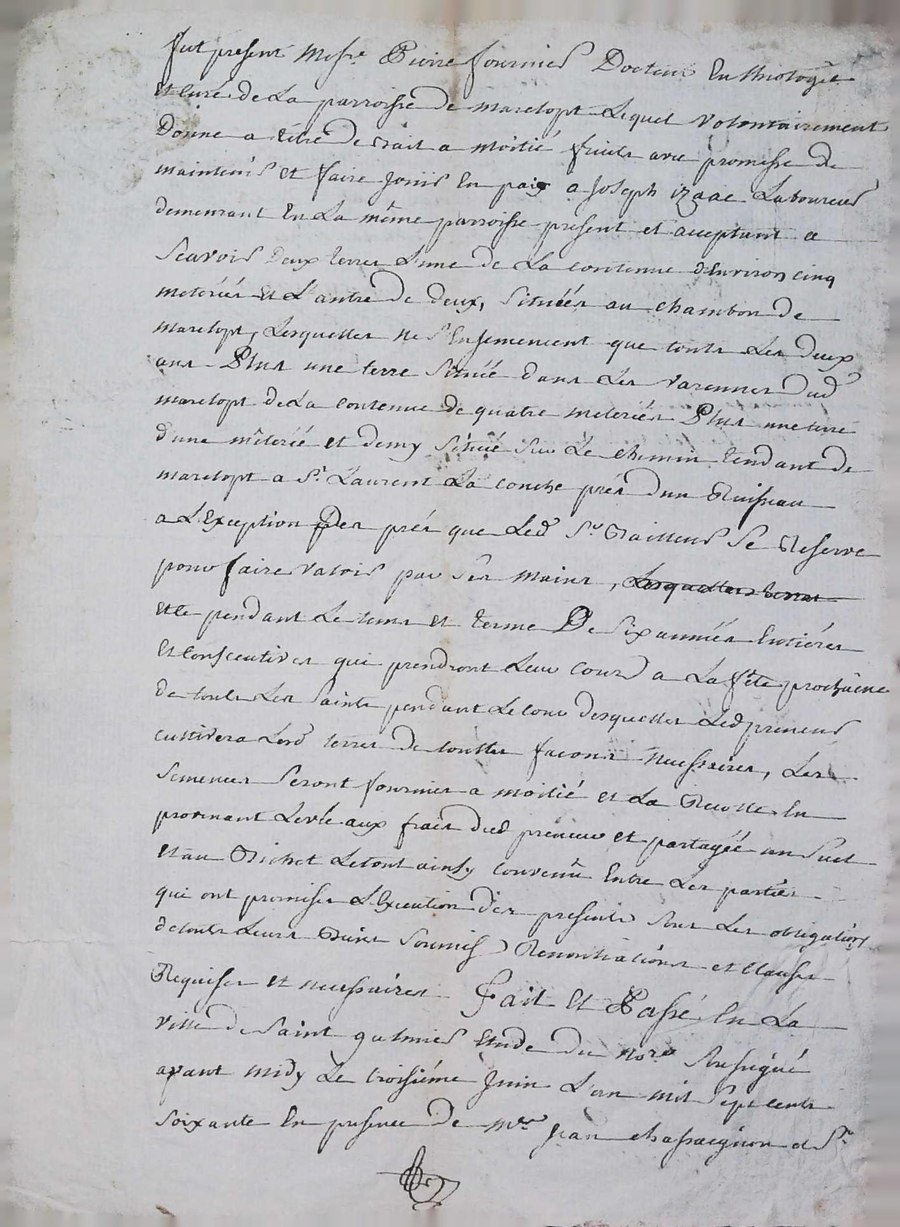 fut present Mesre Pierre fournier Docteur En theologie
Et Curé de La parroisse de marclopt Lequel volontairement
Donne a titre de Bail a moitié fruits avec promesse de
maintenir et faire Jouir En paix a Joseph izaac Laboureur
demeurant En La même parroisse present et aceptant a
Scavoir Deux terres L'une de La contenue d'Environ cinq
meterées Et L'autre de deux, Situées au chambon de
marclopt, Lesquelles ne s'Ensemencent que touts Les deux
ans. Plus une terre Située dans Les varennes dud
marclopt de La contenue de quatre meterées Plus une terre
d'une méterée et demy Située Sur Le chemin tendant de
marclopt a St Laurent La conche près d'un Ruisseau
a L'Exception Des prés que Led Sr Bailleur Se Reserve
pour faire valoir par ses mains, Lesquelles terres
et ce pendant Le tems et terme De Six années Entières
Et Consecutives qui prendront Leur cour a La fête prochaine
de touts Les Saints pendant Le cour desquelles Led preneur
cultivera Lesd terres de touttes facons necessaires, Les
Semences Seront fournies a moitié et La Recolte En
provenant Levée aux frais dud preneur et partagée au Suel
et au Bichet Le tout ainsy Convenû Entre Les parties
qui ont promises L'Execution des presents Sous Les obligations
de touts Leurs Biens Soumis Renontiations et clauses
Requises et necessaires Fait Et Passé En La
ville de Saint galmier Etude du Nore Soussigné
avant midy Le troisiéme Juin L'an mil Sept cents
Soixante En presence de Mre Jean chassaignon et Sr